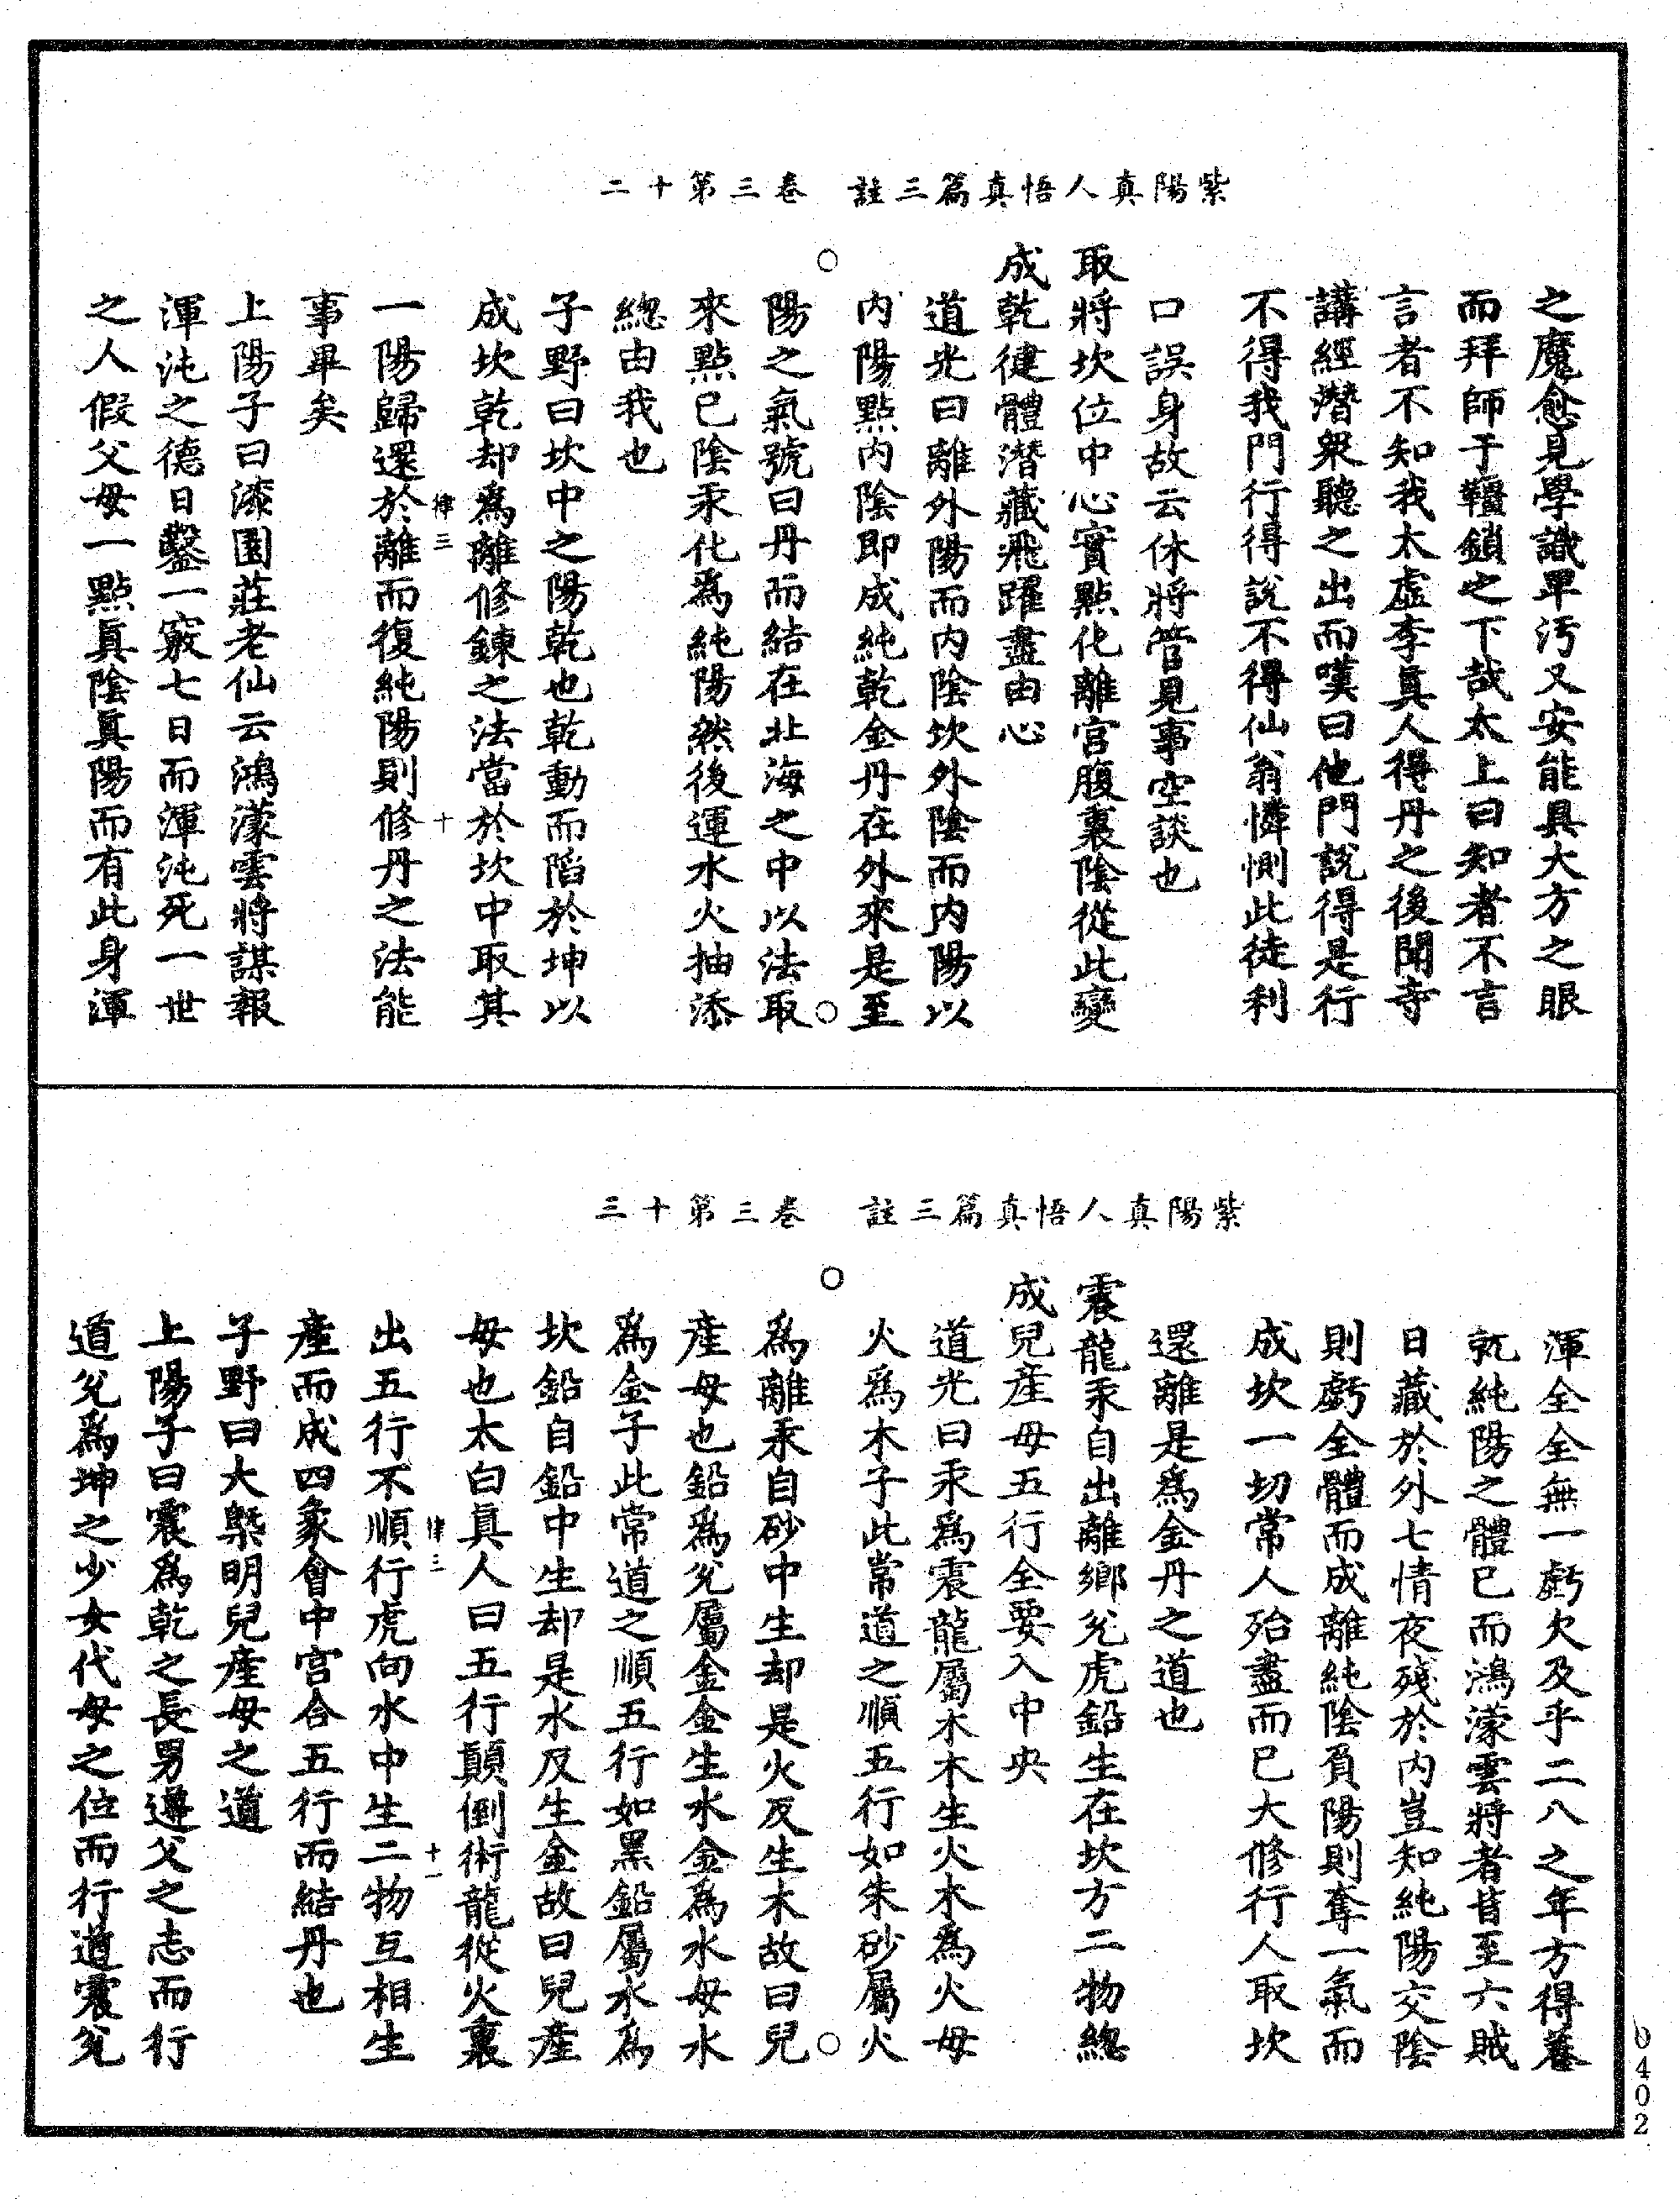 紫陽真人悟真篇三註　卷三第十二
之魔愈見學識卑污又安能具大方之眼
而拜師于韁鎖之下哉太上曰知者不言
言者不知我太虛李真人得丹之後聞寺
講經潛衆聽之出而嘆曰他門說得是行
不得我門行得說不得仙翁憐惻此徒利
口誤身故云休將管見事空談也
取將坎位中心實點化離宮腹裏陰從此變
成乾健體潛藏飛躍盡由心
道光曰離外陽而内陰坎外陰而内陽以
内陽點内陰即成純乾金丹在外來是至
陽之氣號曰丹而結在北海之中以法取
來點已陰汞化爲純陽然後運水火抽添
總由我也
子野曰坎中之陽乾也乾動而陷於坤以
成坎乾却爲離修鍊之法當於坎中取其
律三　十
一陽歸還於離而復純陽則修丹之法能
事畢矣
上陽子曰漆園莊老仙云鴻濛雲將謀報
渾沌之德日鑿一竅七日而渾沌死一世
之人假父母一點真陰真陽而有此身渾
紫陽真人悟真篇三註　卷三第十三
渾全全無一虧欠及乎二八之年方得養
就純陽之體已而鴻濛雲將者皆至六賊
日藏於外七情夜殘於内豈知純陽交陰
則虧全體而成離純陰負陽則奪一氣而
成坎一切常人殆盡而已大修行人取坎
還離是爲金丹之道也
震龍汞自出離鄉兊虎鉛生在坎方二物總
成兒產母五行全要入中央
道光曰汞爲震龍屬木木生火木為火母
火爲木子此常道之順五行如朱砂屬火
為離汞自砂中生却是火反生木故曰兒
產母也鉛爲兊屬金金生水金為水母水
爲金子此常道之順五行如黑鉛屬水爲
坎鉛自鉛中生却是水反生金故曰兒產
母也太白真人曰五行顛倒術龍從火裏
律三　十一
出五行不順行虎向水中生二物互相生
產而成四象會中宮合五行而結丹也
子野曰大槩明兒產母之道
上陽子曰震爲乾之長男遵父之志而行
道兊爲坤之少女代母之位而行道震兊
0402